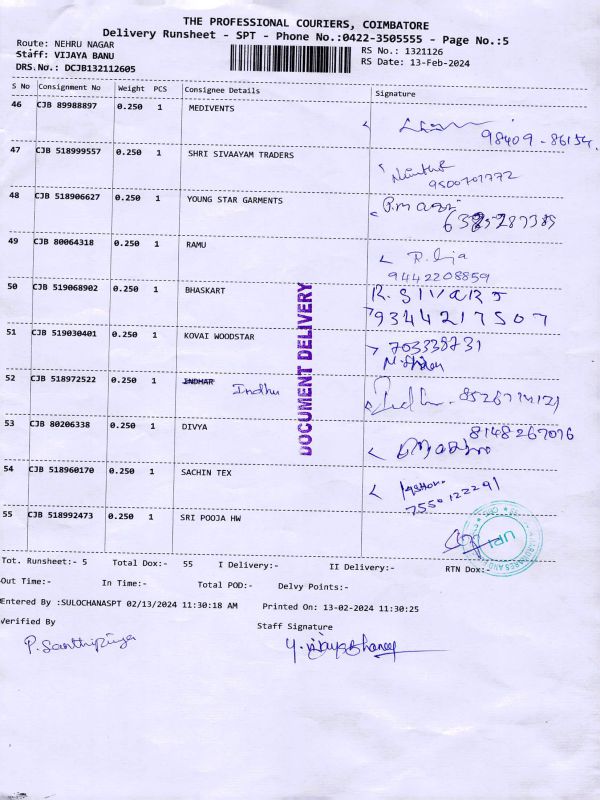 THE PROFESSIONAL COURIERS, COIMBATORE
Delivery Runsheet - SPT - Phone No.:0422-3505555 - Page No.:5
Route: NEHRU NAGAR
RS No.: 1321126
Staff: VIJAYA BANU
RS Date: 13-Feb-2024
DRS.No.: DCJB132112605
S No Consignment No Weight PCS Consignee Details Signature
46 CJB 89988897 0.250 1 MEDIVENTS
98409-86154.
47 CJB 518999557 0.250 1 SHRI SIVAAYAM TRADERS
9500701772
48 CJB 518906627 0.250 1 YOUNG STAR GARMENTS
49 CJB 80064318 0.250 1 RAMU
9442208859
50 CJB 519068902 0.250 1 BHASKART
9344217507
51 CJB 519030401 0.250 1 KOVAI WOODSTAR
703338731
52 CJB 518972522 0.250 1 INDHAR Indhu
53 CJB 80206338 0.250 1 DIVYA
8148267076
54 CJB 518960170 0.250 1 SACHIN TEX
7550122291
55 CJB 518992473 0.250 1 SRI POOJA HW
DOCUMENT DELIVERY
Tot. Runsheet:- 5 Total Dox:- 55 I Delivery:- II Delivery:- RTN Dox:-
Out Time:- In Time:- Total POD:- Delvy Points:-
Entered By :SULOCHANASPT 02/13/2024 11:30:18 AM Printed On: 13-02-2024 11:30:25
Verified By
Staff Signature
P. Santhipriya